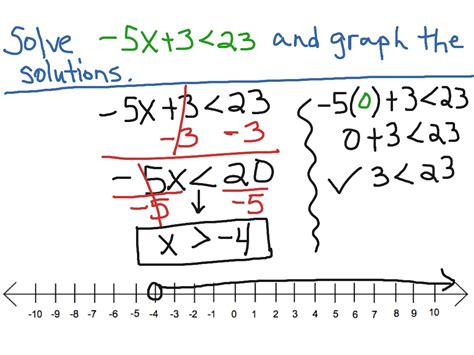 Solve -5x+3<23 and graph the
solutions.
-5x+3<23
-3 -3
-5x<20
-5 ↓ -5
x > -4
-5(0)+3<23
0+3<23
✓ 3<23
-10 -9 -8 -7 -6 -5 -4 -3 -2 -1 0 1 2 3 4 5 6 7 8 9 10